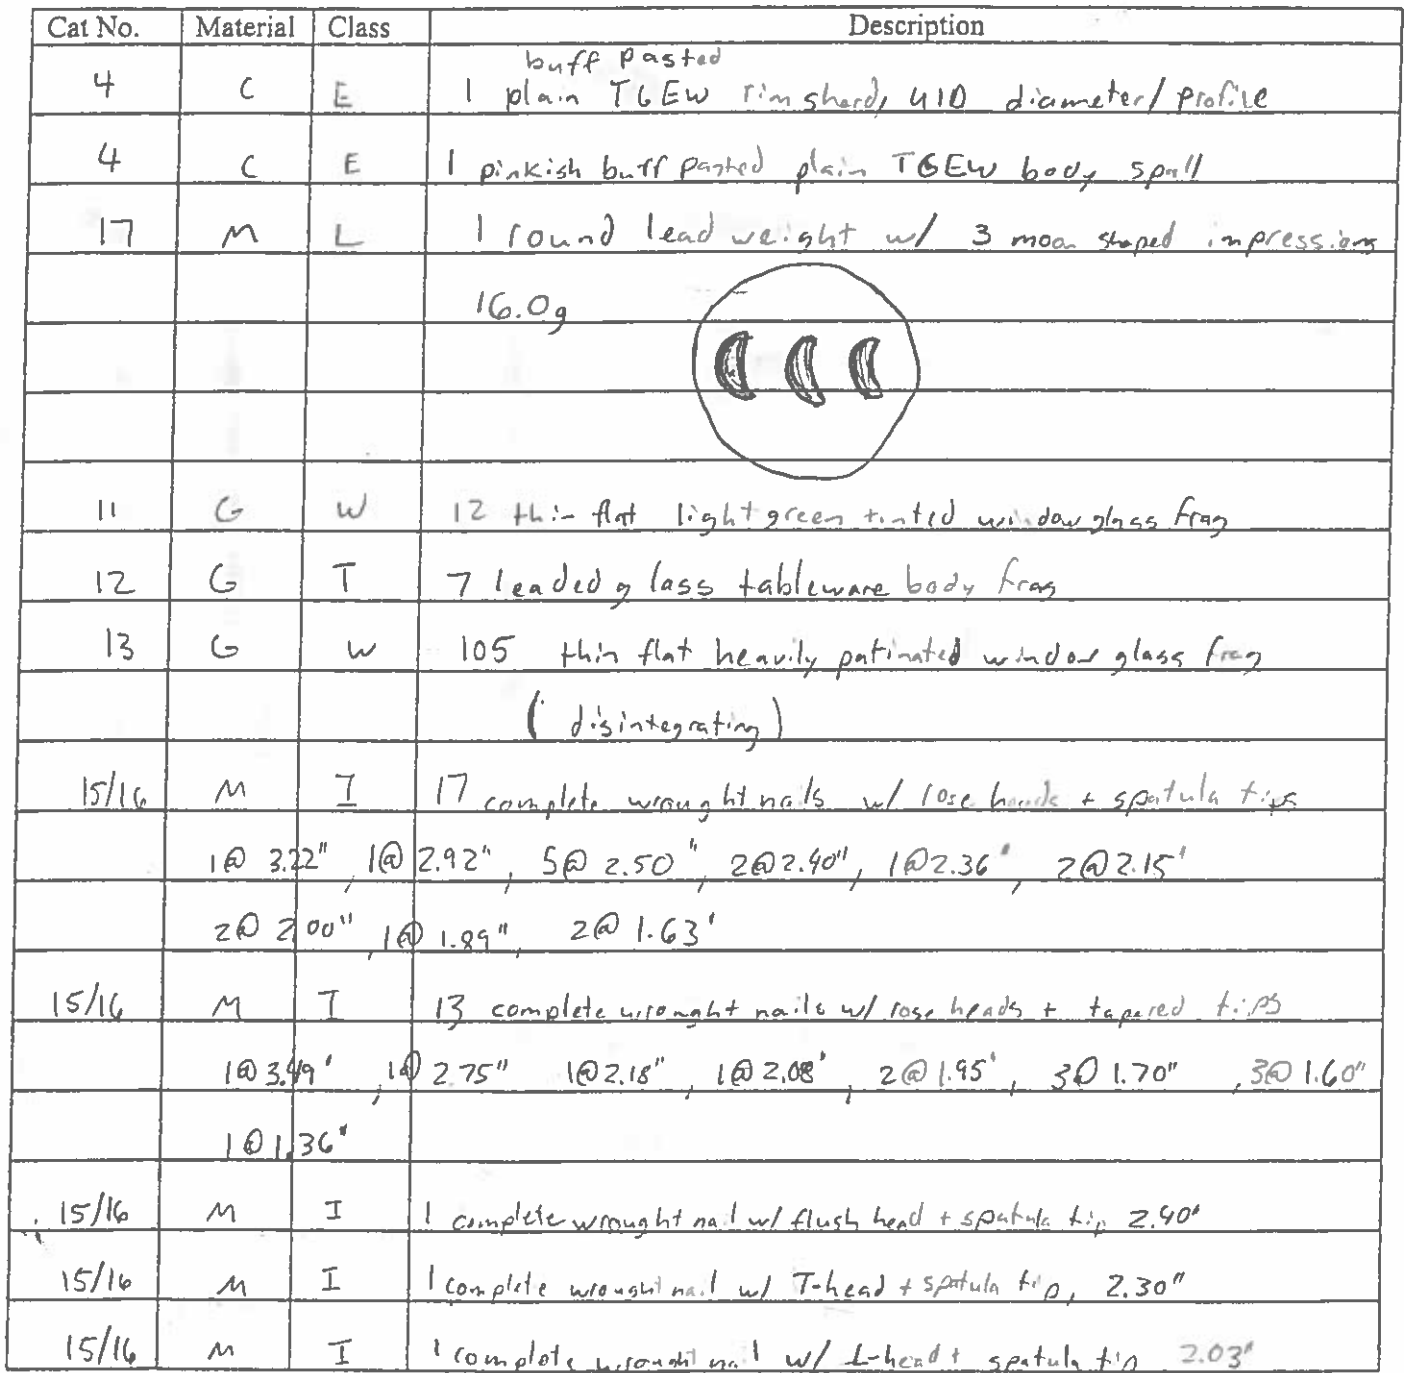 Cat No. Material Class Description
buff pasted
4 C E 1 plain TGEW rim sherd, UID diameter/profile
4 C E 1 pinkish buff pasted plain TGEW body spall
17 M L 1 round lead weight w/ 3 moon shaped impressions
16.0g
11 G W 12 thin flat light green tinted window glass frag
12 G T 7 leaded glass tableware body frag
13 G W 105 thin flat heavily patinated window glass frag
(disintegrating)
15/16 M I 17 complete wrought nails w/ rose heads + spatula tips
1@ 3.22", 1@ 2.92", 5@ 2.50", 2@2.40", 1@2.36", 2@2.15"
2@ 2.00", 1@ 1.89", 2@ 1.63"
15/16 M I 13 complete wrought nails w/ rose heads + tapered tips
1@3.49", 1@ 2.75" 1@2.18", 1@2.08", 2@1.95", 3@ 1.70", 3@ 1.60"
1@1.36"
15/16 M I 1 complete wrought nail w/ flush head + spatula tip 2.40"
15/16 M I 1 complete wrought nail w/ T-head + spatula tip, 2.30"
15/16 M I 1 complete wrought nail w/ L-head + spatula tip 2.03"